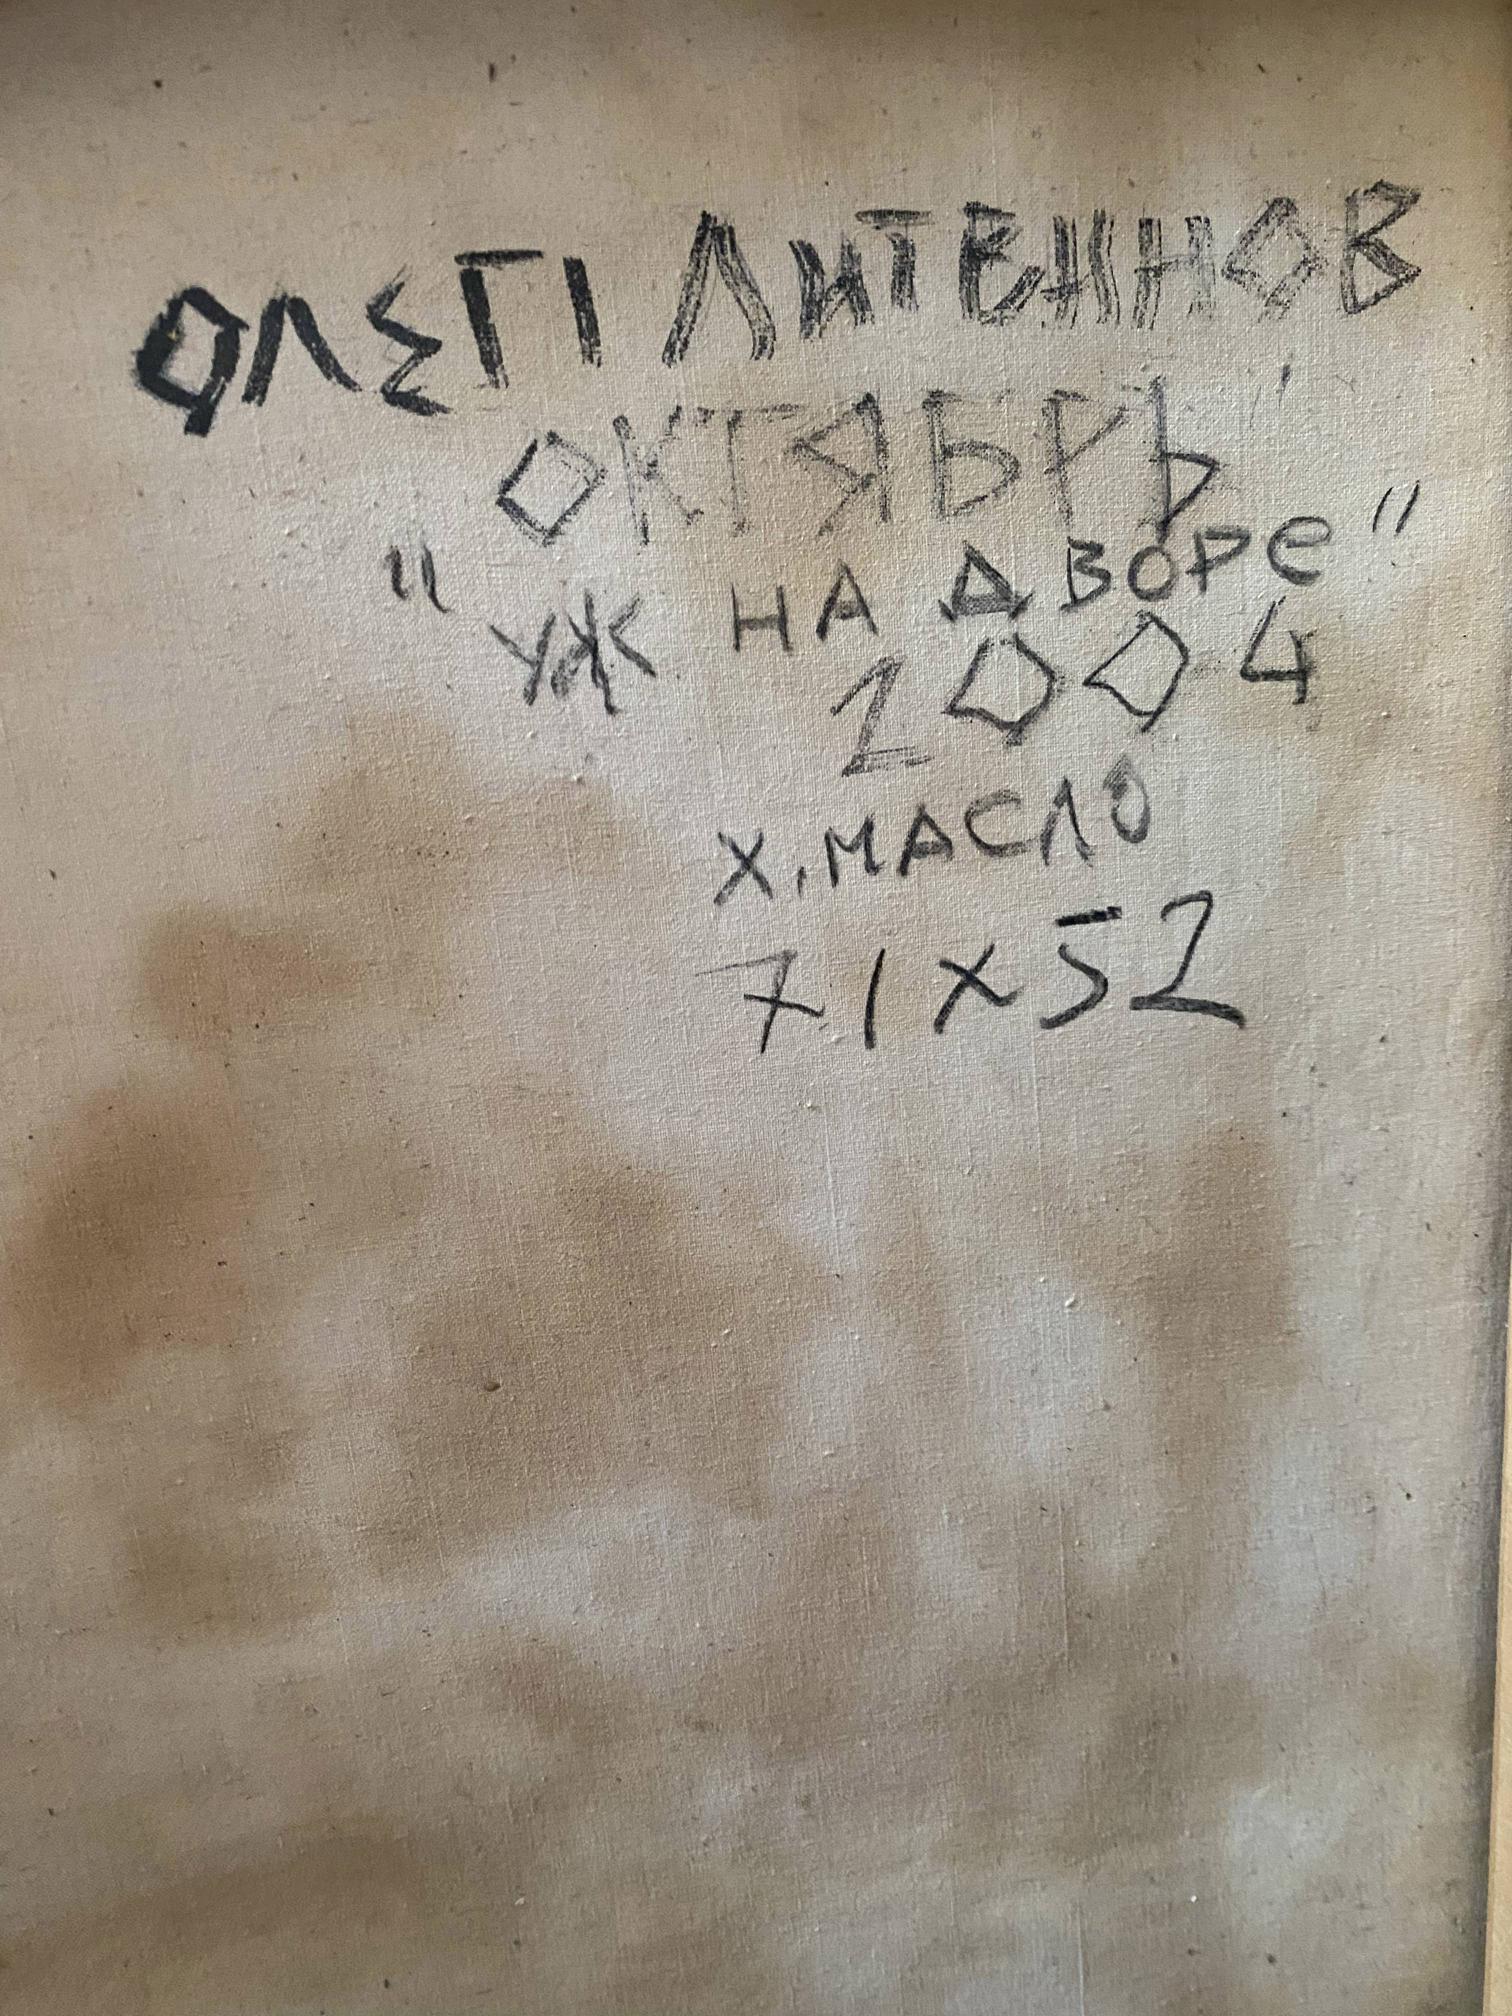 ОЛЕГ ЛИТВИНОВ
ОКТЯБРЬ"
" УЖ НА ДВОРЕ"
2004
Х.МАСЛО
71х52